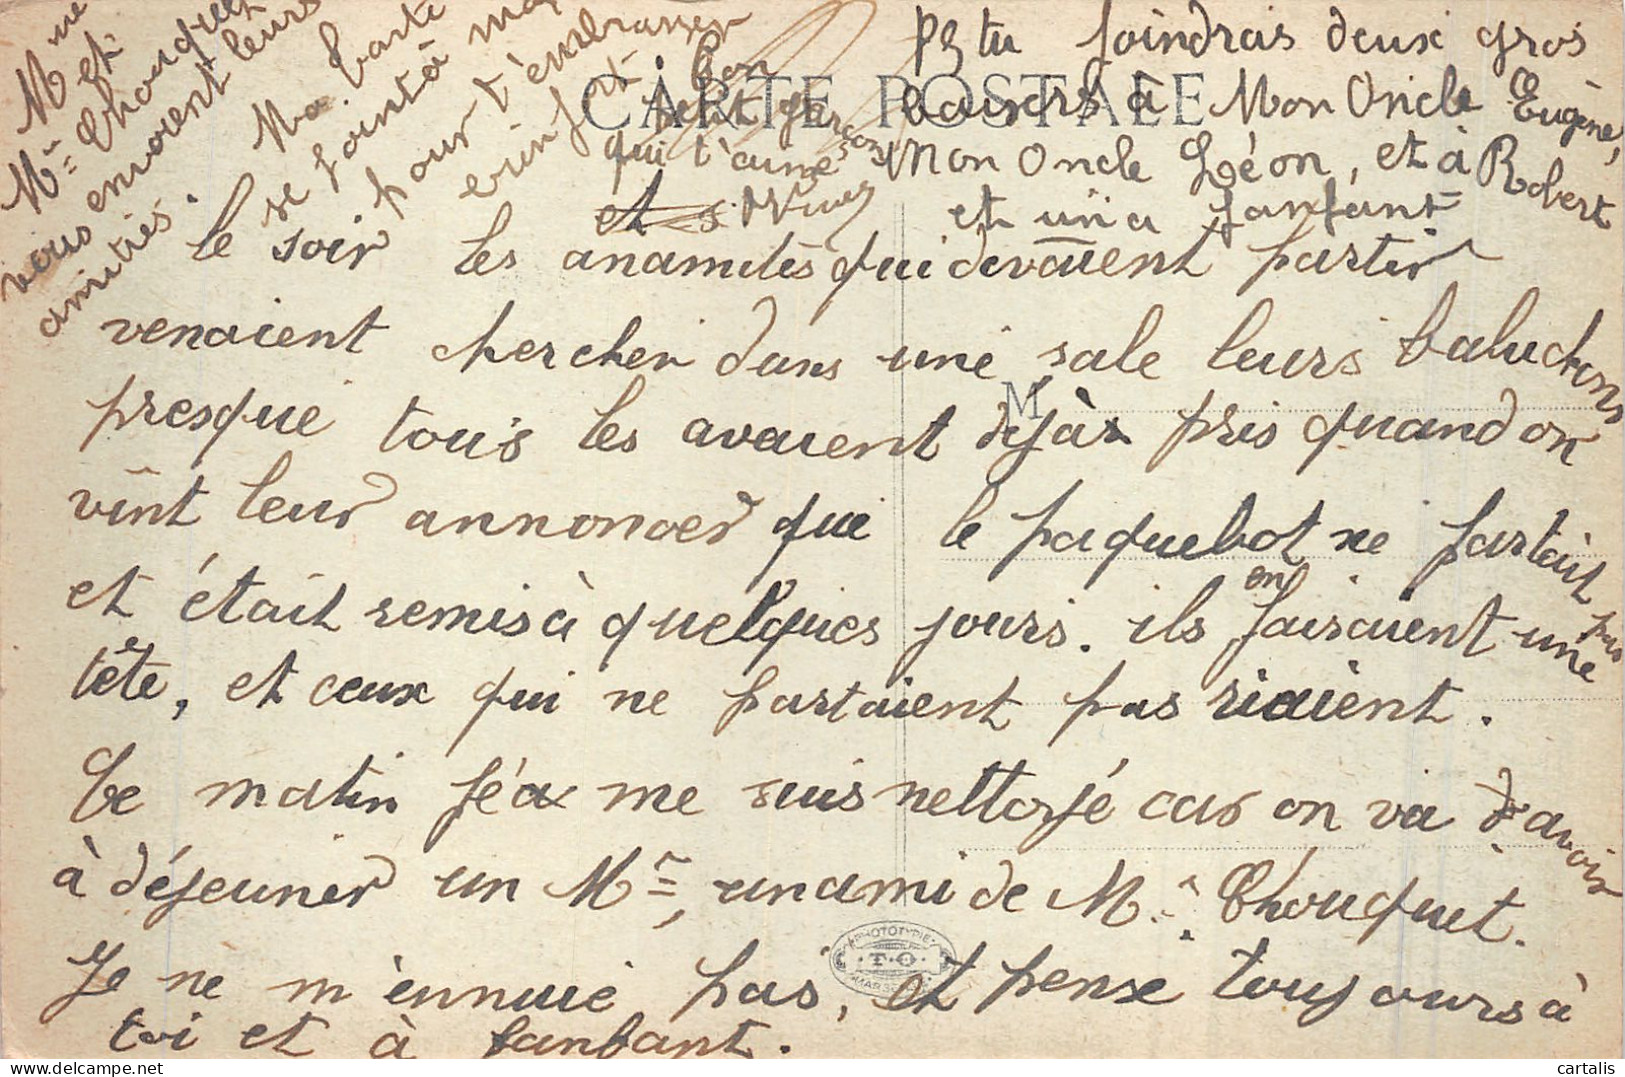 le soir les anamites qui devaient partir
venaient chercher dans une sale leurs baluchons
presque tous les avaient déjà pris quand on
vint leur annoncer que le paquebot ne partait pas
et était remis à quelques jours. ils en faisaient une
tête, et ceux qui ne partaient pas riaient.
Ce matin je me suis nettoyé car on va avoir
à déjeuner un Mr, un ami de Mr. Chouquet.
Je ne m'ennuie pas, et pense toujours à
toi et à fanfant.
Mme et
Mr Chouquet
vous envoient leurs
amitiés.
Ma carte
se joint à
pour t'embrasser
bien fort
Ton
petit garçon
qui t'aime
et s
PS tu joindras deux gros
baisers à Mon Oncle Eugène,
Mon Oncle Léon, et à Robert
et un à fanfant
CARTE POSTALE
M
PHOTOTYPIE
T.O
MARSEILLE
cartalis.com